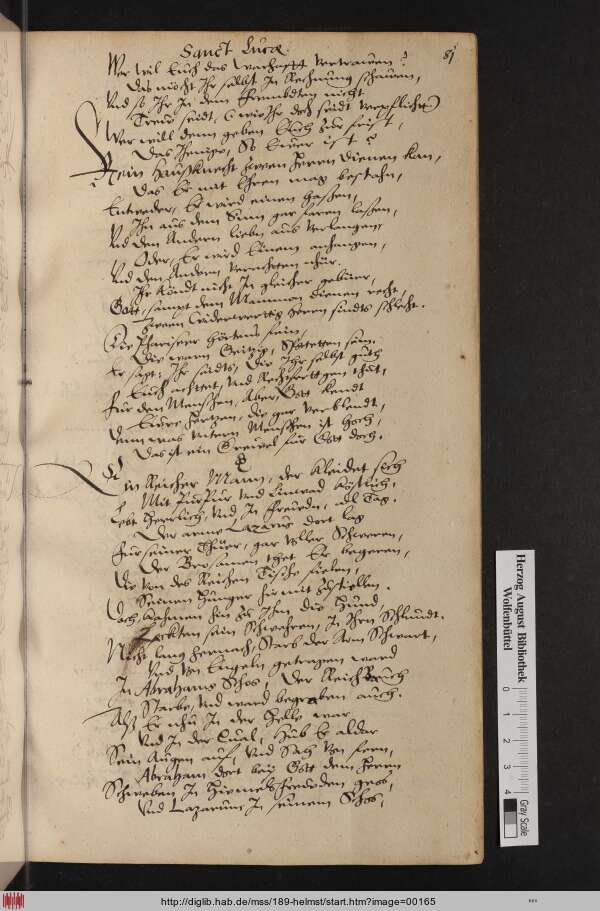 Sanct Lucæ.
81
Wer wil Euch das warhafft vertrauen?
Das möcht Ihr selbst In Rechnung schauen,
Und so Ihr In dem frembdten nicht
Treuw seidt, wie Ihr doch seidt verpflicht
Wer will denn geben Euch zur frist,
Das Ihenige, So Euer ist?
Kein Haußknecht zween Herrn dienen kan,
Das Er mit Ehren mag bestahn,
Entweder, Er wird einen hassen,
Ihn aus dem Sinn gar faren lassen,
Und dem Andern lieben aus verlangen,
Oder, Er wird Einem anhangen,
Und den Andern verachten nhur.
Ihr köndt nicht In gleicher gebuer,
Gott, sampt dem Mammon dienen recht,
Zween widerwertig Herrn sindts schlecht.
Die Phariseer hörtens fein,
Die warn Geitzig, Spotetten sein.
Er sagt: Ihr seidts, die Ihr selbst guth
Euch achttet, und Rechtfertigen thut,
Für den Menschen, Aber, Gott kendt
Eure Hertzen, die gar verblendt,
Denn was untern Menschen ist hoch,
Das ist ein Greuel für Gott doch.
Ein Reicher Mann, der kleidet sich
Mit Purpur und Linwad köstlich,
Lebt herrlich, und In freuden, all Tag.
Der arme Lazarus dort lag
Für seiner Thuer, gar voller Schweren,
Der Brosamen thet Er begeren,
Die von des Reichen Tische fielen,
Seinen Hunger hirmit zustillen.
Doch, kahmen hin zu Ihm die Hund,
Leckten sein Schwehren, In Ihrn Schlundt.
Nicht lang hernach, Starb der Arm Schwart,
Und von Engeln getragen ward
In Abrahams Schos, Der Reich auch
Starbe, und ward begraben auch.
Alß Er nhu In der Helle war
Und In der Qual, Hub Er aldar
Sein Augen auf, und Sach von fern,
Abraham dort bey Gott dem Herrn
Schweben In Himelsfreuden groß,
Und Lazarum In seinem Schos,
Herzog August Bibliothek
Wolfenbüttel
0 1 2 3 4
Gray Scale
http://diglib.hab.de/mss/189-helmst/start.htm?image=00165